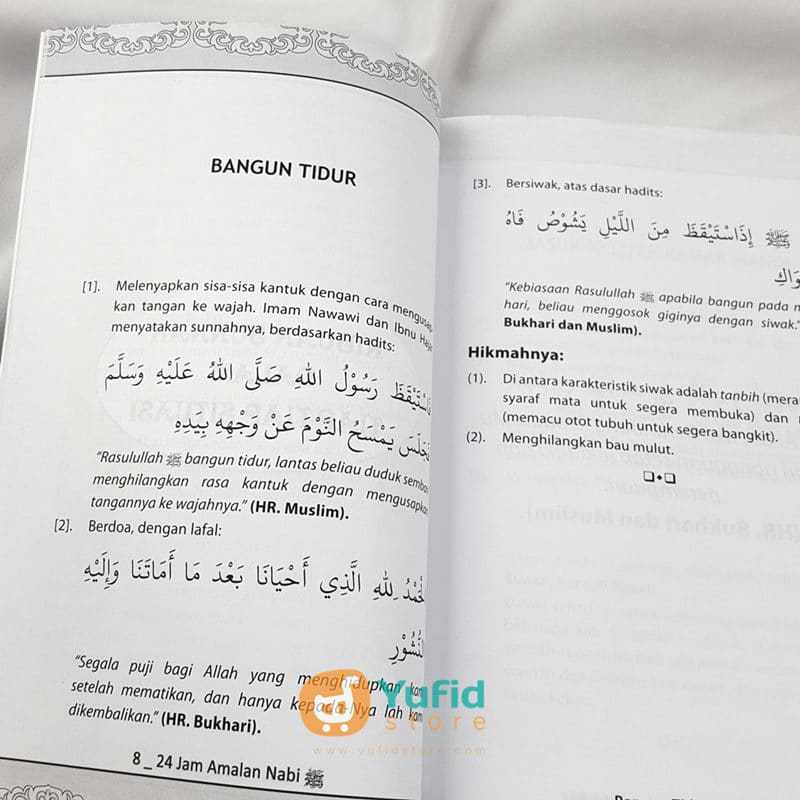 BANGUN TIDUR
[1]. Melenyapkan sisa-sisa kantuk dengan cara mengusap-
kan tangan ke wajah. Imam Nawawi dan Ibnu Hajar
menyatakan sunnahnya, berdasarkan hadits:
اسْتَيْقَظَ رَسُوْلُ اللهِ صَلَّى اللهُ عَلَيْهِ وَسَلَّمَ
فَجَلَسَ يَمْسَحُ النَّوْمَ عَنْ وَجْهِهِ بِيَدِهِ
“Rasulullah ﷺ bangun tidur, lantas beliau duduk
menghilangkan rasa kantuk dengan mengusapkan
tangannya ke wajahnya.” (HR. Muslim).
[2]. Berdoa, dengan lafal:
الْحَمْدُ لِلهِ الَّذِي أَحْيَانَا بَعْدَ مَا أَمَاتَنَا وَإِلَيْهِ
النُّشُوْرِ
“Segala puji bagi Allah yang menghidupkan
setelah mematikan, dan hanya kepada-Nya lah
dikembalikan.” (HR. Bukhari).
8 _ 24 Jam Amalan Nabi ﷺ
[3]. Bersiwak, atas dasar hadits:
ﷺ إِذَاسْتَيْقَظَ مِنَ اللَّيْلِ يَشُوْصُ فَاهُ
“Kebiasaan Rasulullah ﷺ apabila bangun pada
hari, beliau menggosok giginya dengan siwak.”
Bukhari dan Muslim).
Hikmahnya:
(1). Di antara karakteristik siwak adalah tanbih
syaraf mata untuk segera membuka) dan
(memacu otot tubuh untuk segera bangkit).
(2). Menghilangkan bau mulut.
Yufid
store
www.yufidstore.com